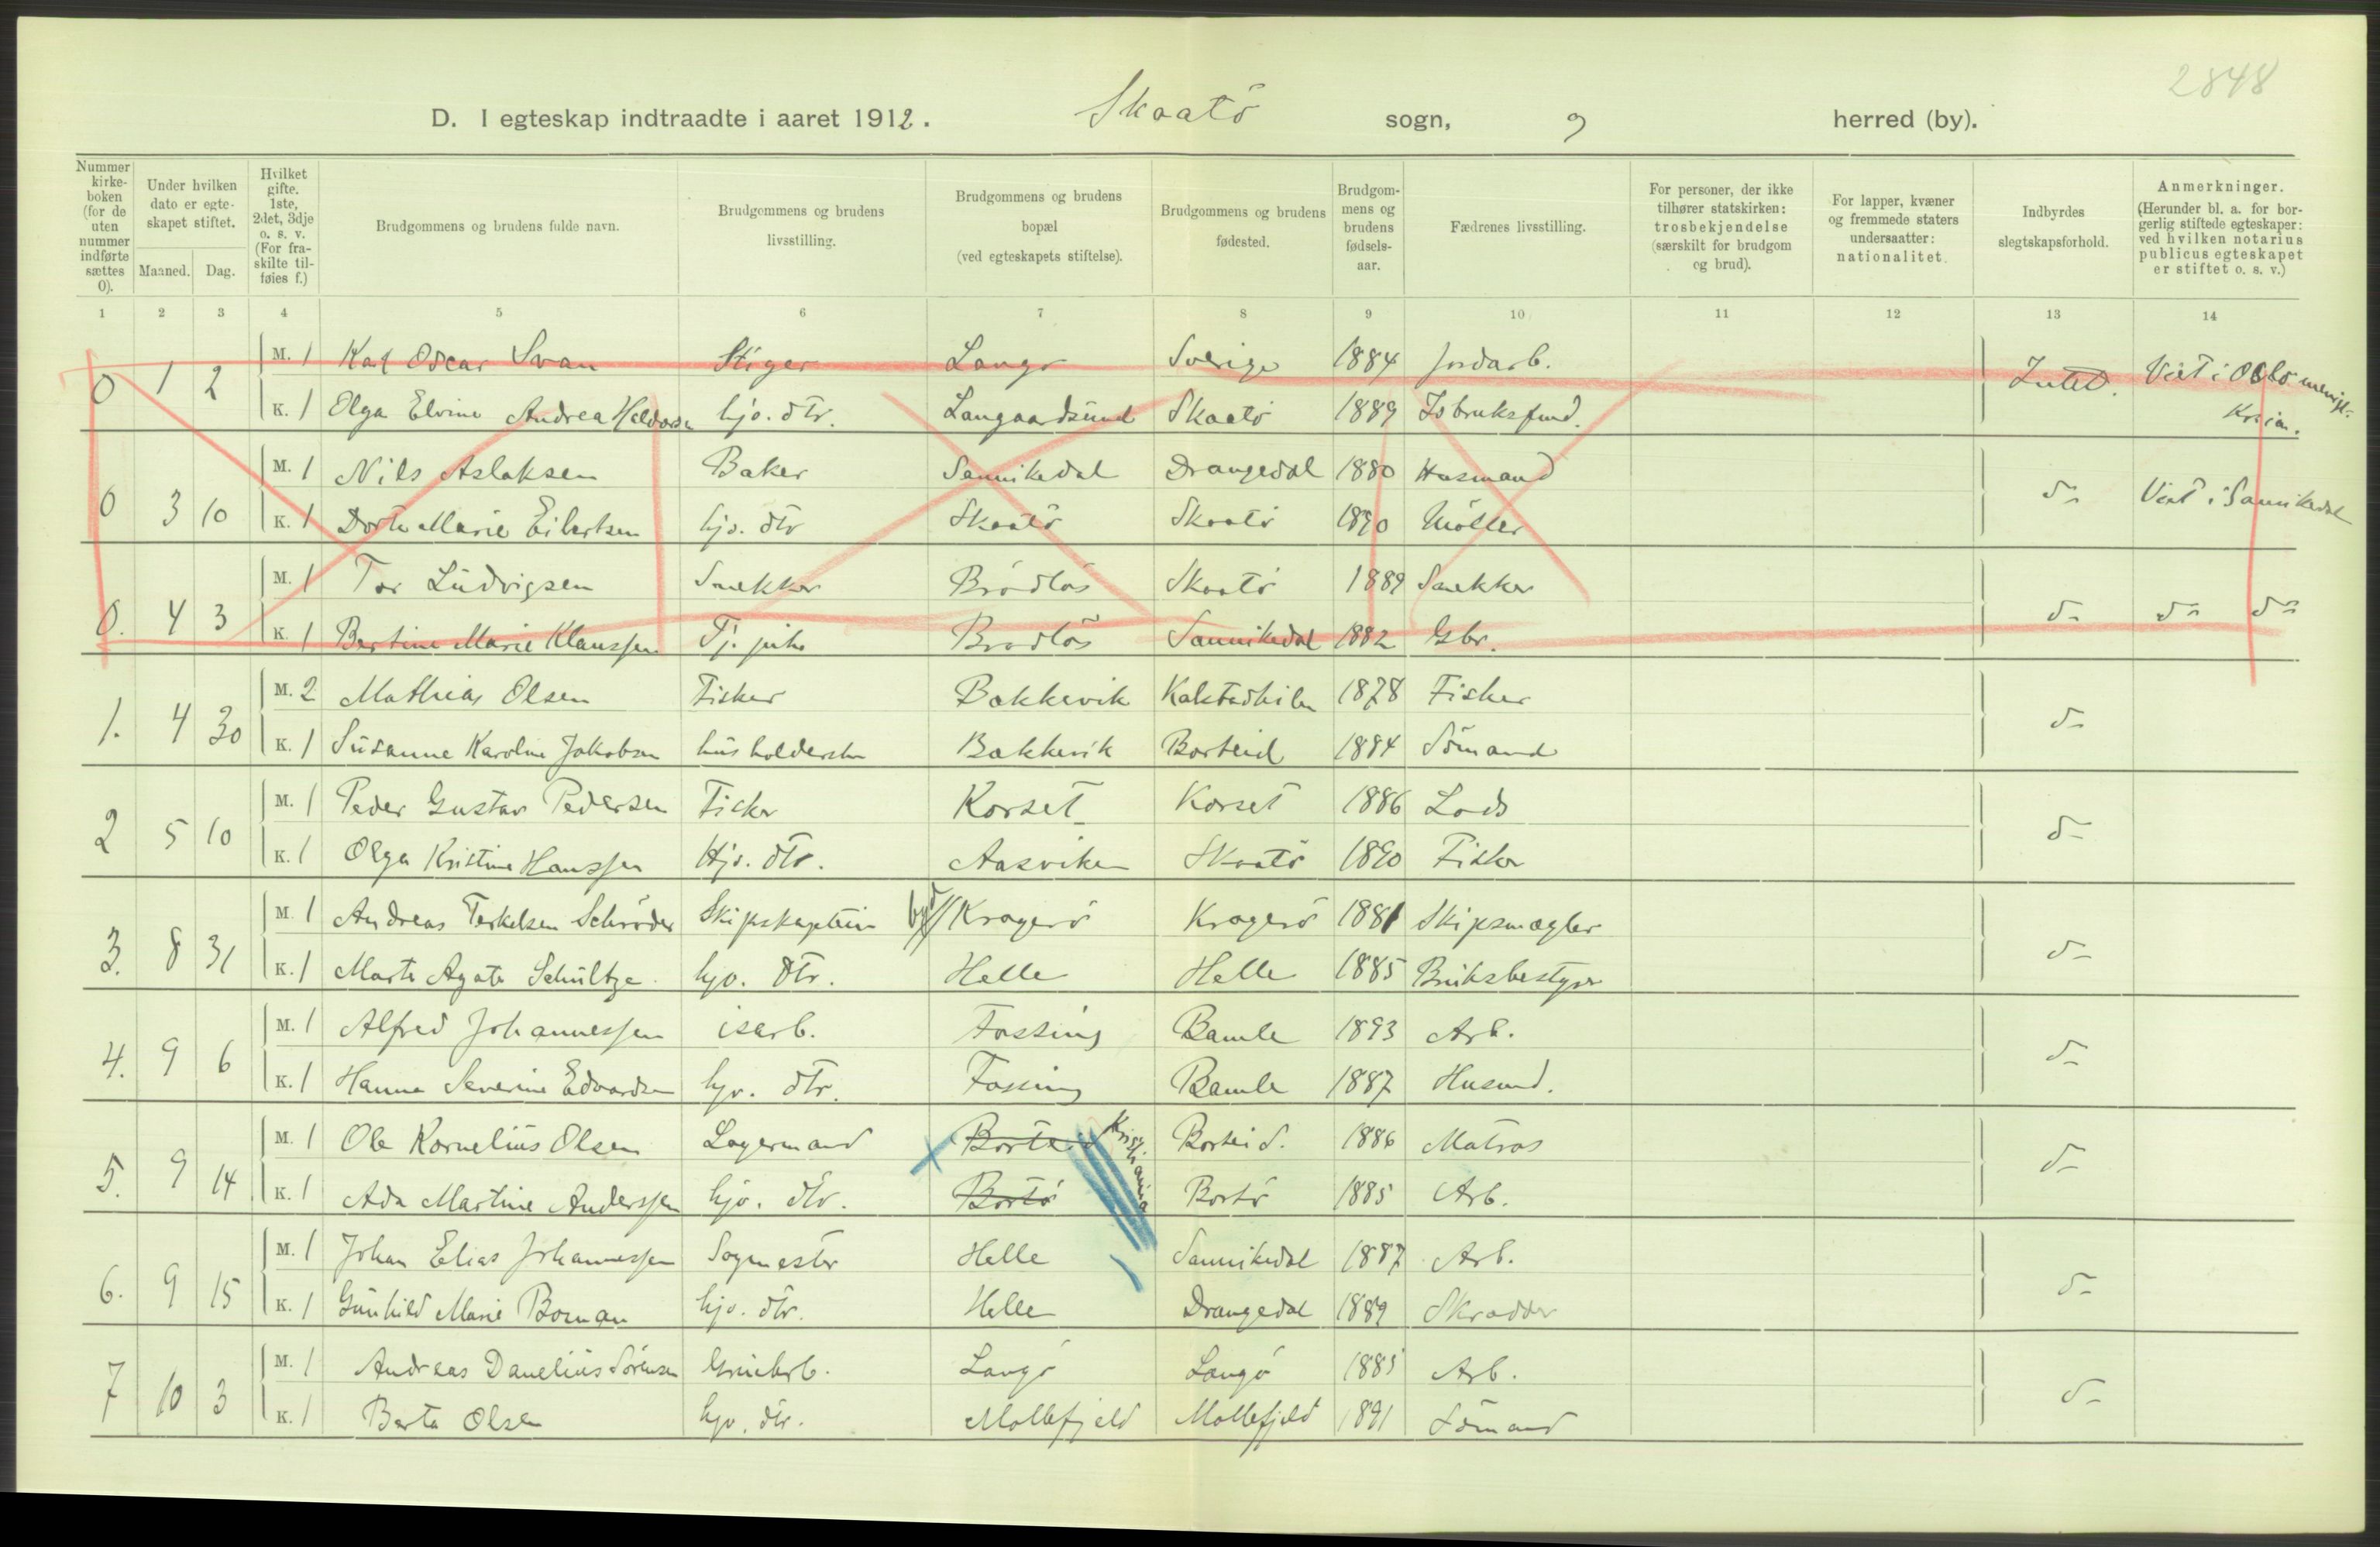 2848
D. I egteskap indtraadte i aaret 1912. Skaatö sogn, herred (by).
Nummer kirke-boken (for de uten nummer indførte sættes 0).
Under hvilken dato er egte-skapet stiftet.
Maaned. Dag.
Hvilket gifte. 1ste, 2det, 3dje o. s. v. (For fra-skilte til-føies f.)
Brudgommens og brudens fulde navn.
Brudgommens og brudens livsstilling.
Brudgommens og brudens bopæl (ved egteskapets stiftelse).
Brudgommens og brudens fødested.
Brudgom-mens og brudens fødsels-aar.
Fædrenes livsstilling.
For personer, der ikke tilhører statskirken: trosbekjendelse (særskilt for brudgom og brud).
For lapper, kvæner og fremmede staters undersaatter: nationalitet.
Indbyrdes slegtskapsforhold.
Anmerkninger. (Herunder bl. a. for bor-gerlig stiftede egteskaper: ved hvilken notarius publicus egteskapet er stiftet o. s. v.)
1 2 3 4 5 6 7 8 9 10 11 12 13 14
0 1 2 M. 1 Karl Oscar Svan Stiger Langö Sverige 1884 Jordarb. Intet. Viet i Oslo
K. 1 Olga Elvine Andrea Halvorsen hjv. dtr. Langaardsund Skaatö 1889 Isbruksfmd. Kr.ia.
0 3 10 M. 1 Nils Aslaksen Baker Sannikedal Drangedal 1880 Husmand do Viet i Sannikedal
K. 1 Dorte Marie Eilertsen hjv. dtr Skaatö Skaatö 1890 Möller
0. 4 3 M. 1 Tor Ludvigsen Snekker Brödlös Skaatö 1889 Snekker do do do
K. 1 Bertine Marie Klaussen Tj. pike Brödlös Sannikedal 1882 Gbr.
1. 4 30 M. 2 Mathias Olsen Fisker Bakkevik Kalstadkilen 1878 Fisker do
K. 1 Susanne Karoline Jakobsen husholderske Bakkevik Borteid 1884 Sömand
2 5 10 M. 1 Peder Gustav Pedersen Fisker Korset Korset 1886 Lods do
K. 1 Olga Kristine Hanssen Hjv. dtr. Aasviken Skaatö 1890 Fisker
3. 8 31 M. 1 Andreas Terkelsen Schröder Skipskaptein Kragerö Kragerö 1881 Skipsmægler do
K. 1 Marte Agate Schultze hjv. dtr. Helle Helle 1885 Bruksbestyrer
4. 9 6 M. 1 Alfred Johannessen isarb. Fossing Bamle 1893 Arb. do
K. 1 Hanna Severine Edvardsen hjv. dtr. Fossing Bamle 1887 Husmd.
5. 9 14 M. 1 Ole Kornelius Olsen Lagermand Borteid Kristiania Borteid. 1886 Matros do
K. 1 Ada Martine Anderssen hjv. dtr. Bortö Bortö 1885 Arb.
6. 9 15 M. 1 Johan Elias Johannessen Sagmester Helle Sannikedal 1887 Arb. do
K. 1 Gunhild Marie Boman hjv. dtr. Helle Drangedal 1889 Skrædder
7 10 3 M. 1 Andreas Danelius Sörensen Grubearb. Langö Langö 1885 Arb. do
K. 1 Berta Olsen hjv. dtr. Mollefjeld Mollefjeld 1891 Sömand